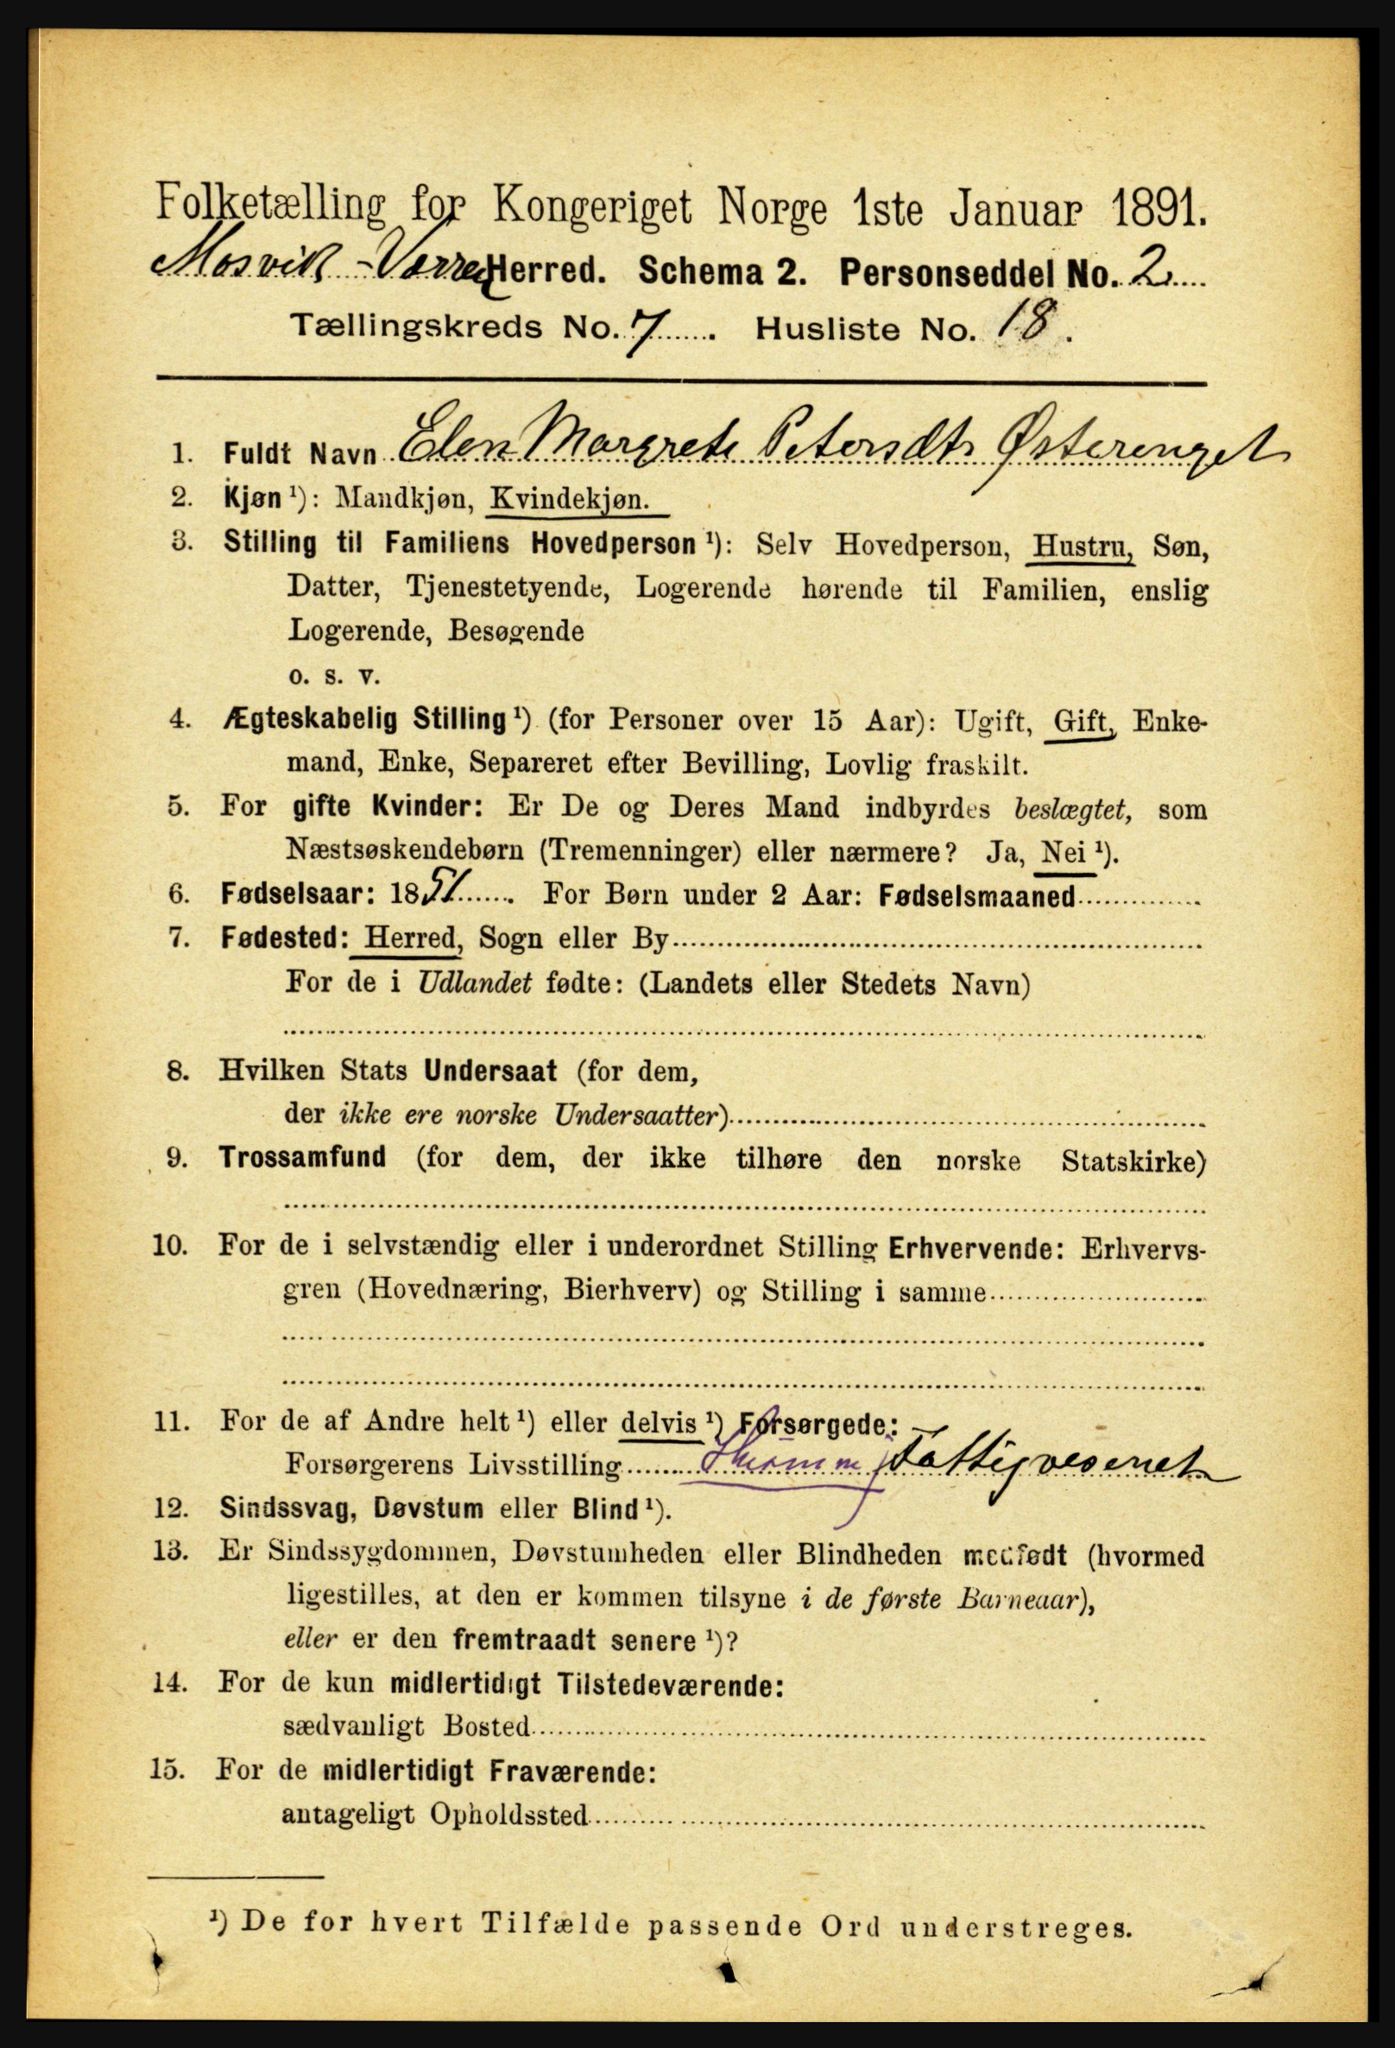 Folketælling for Kongeriget Norge 1ste Januar 1891.
Mosvik - Verran Herred. Schema 2. Personseddel No. 2
Tællingskreds No. 7. Husliste No. 18.
1. Fuldt Navn Elen Margrete Petersdtr Østerenget
2. Kjøn ¹): Mandkjøn, Kvindekjøn.
3. Stilling til Familiens Hovedperson ¹): Selv Hovedperson, Hustru, Søn,
Datter, Tjenestetyende, Logerende hørende til Familien, enslig
Logerende, Besøgende
o. s. v.
4. Ægteskabelig Stilling ¹) (for Personer over 15 Aar): Ugift, Gift, Enke-
mand, Enke, Separeret efter Bevilling, Lovlig fraskilt.
5. For gifte Kvinder: Er De og Deres Mand indbyrdes beslægtet, som
Næstsøskendebørn (Tremenninger) eller nærmere? Ja, Nei ¹).
6. Fødselsaar: 1851. For Børn under 2 Aar: Fødselsmaaned
7. Fødested: Herred, Sogn eller By
For de i Udlandet fødte: (Landets eller Stedets Navn)
8. Hvilken Stats Undersaat (for dem,
der ikke ere norske Undersaatter)
9. Trossamfund (for dem, der ikke tilhøre den norske Statskirke)
10. For de i selvstændig eller i underordnet Stilling Erhvervende: Erhvervs-
gren (Hovednæring, Bierhverv) og Stilling i samme
11. For de af Andre helt ¹) eller delvis ¹) Forsørgede:
Forsørgerens Livsstilling Fattigvesenet
12. Sindssvag, Døvstum eller Blind ¹).
13. Er Sindssygdommen, Døvstumheden eller Blindheden medfødt (hvormed
ligestilles, at den er kommen tilsyne i de første Barneaar),
eller er den fremtraadt senere ¹)?
14. For de kun midlertidigt Tilstedeværende:
sædvanligt Bosted
15. For de midlertidigt Fraværende:
antageligt Opholdssted
¹) De for hvert Tilfælde passende Ord understreges.